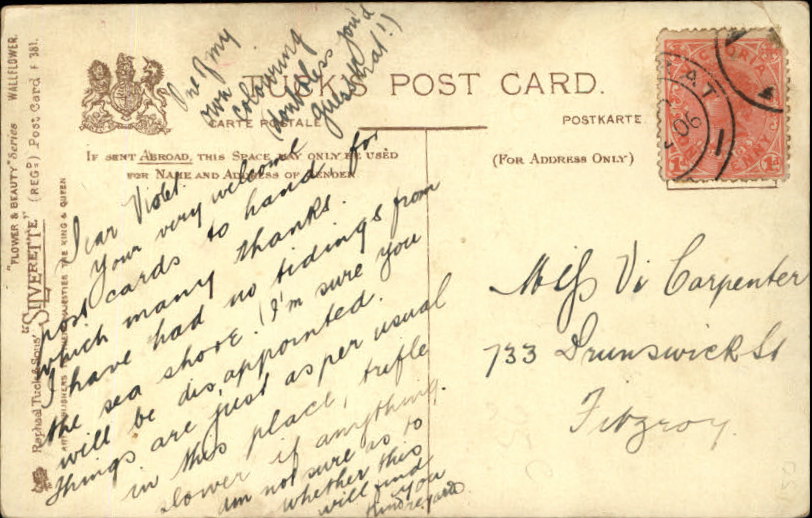 "FLOWER & BEAUTY" Series WALLFLOWER.
Raphael Tuck & Sons' "SILVERETTE" (REGD) Post Card F 381.
ART PUBLISHERS TO THE KING & QUEEN
TUCK'S POST CARD.
CARTE POSTALE
POSTKARTE
IF SENT ABROAD, THIS SPACE MAY ONLY BE USED
FOR NAME AND ADDRESS OF SENDER
(FOR ADDRESS ONLY)
One of my
own colouring
doubtless you'd
guess that!)
Dear Violet.
Your very welcome
post cards to hand, for
which many thanks.
I have had no tidings from
the sea shore. (I'm sure you
will be disappointed.
Things are just as per usual
in this place, trifle
slower if anything.
am not sure as to
whether this
will find
you
Kind regards
Miss Vi Carpenter
733 Brunswick St
Fitzroy.
VICTORIA
ONE PENNY
1d
1d
06
1